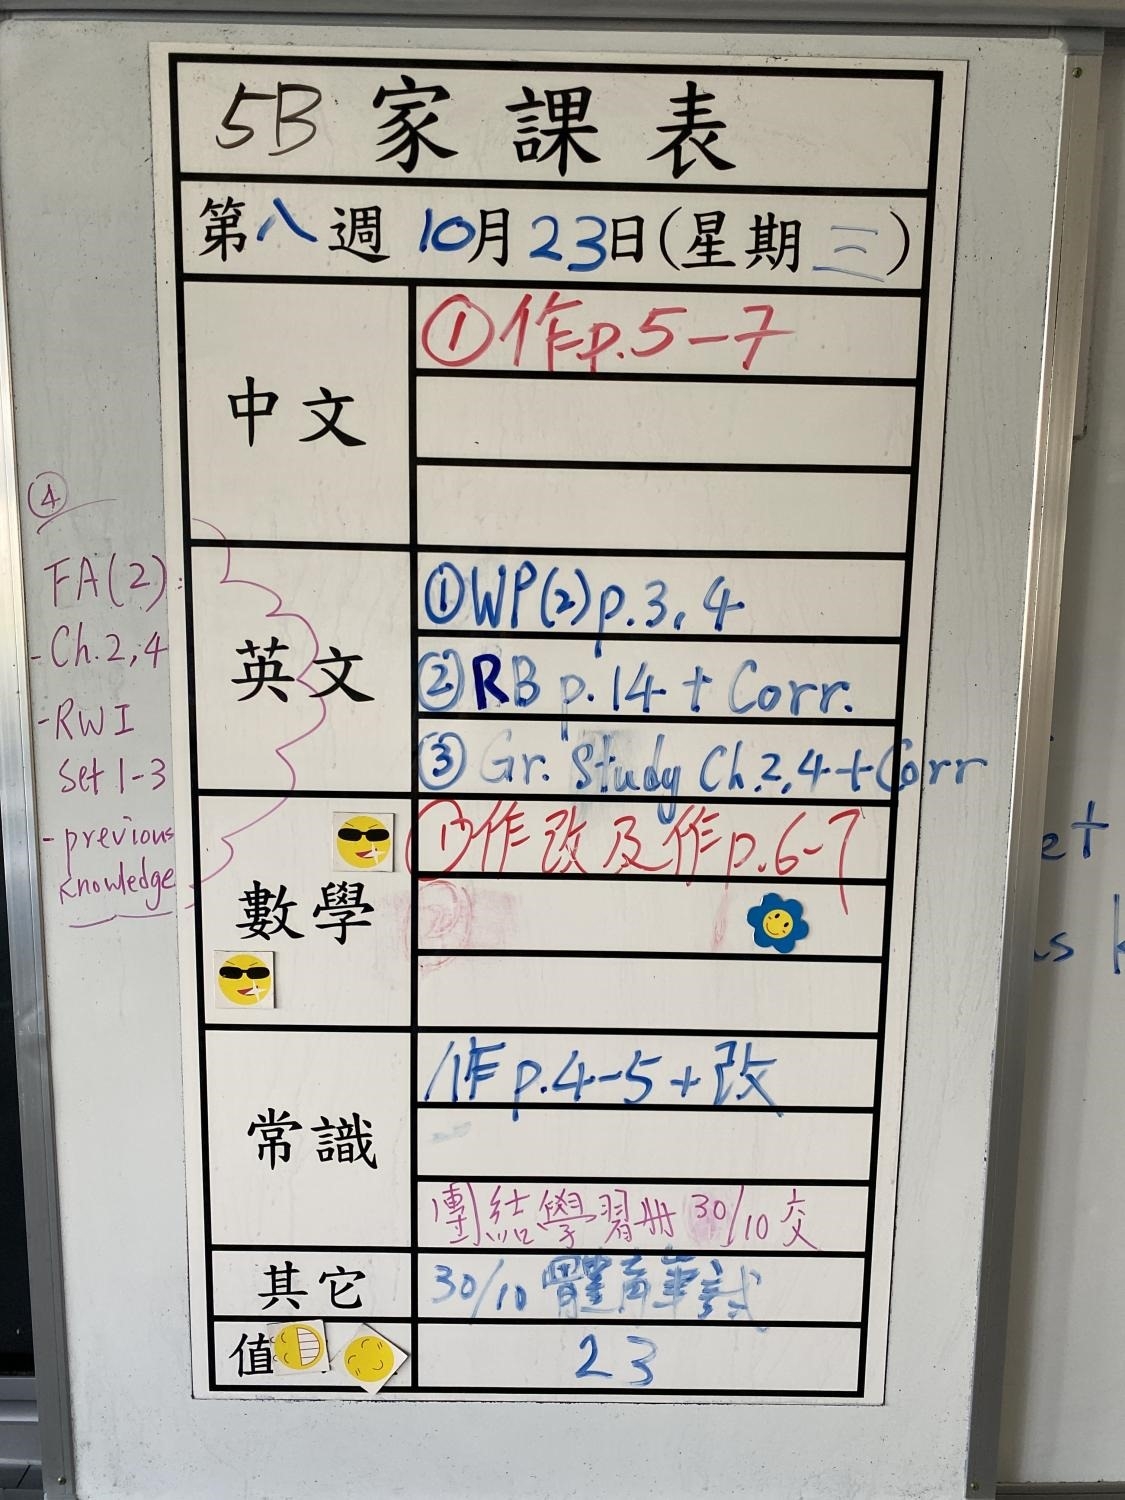 5B 家課表
第八週 10月23日(星期三)
中文
①作p.5-7
英文
①WP(2)p.3,4
②RB p.14 + Corr.
③Gr. Study Ch.2,4+Corr
④
FA(2):
-Ch.2,4
-RWI
Set 1-3
-previous
knowledge
數學
①作改及作p.6-7
常識
作p.4-5+改
團結學習冊 30/10 交
其它
30/10 體育筆試
值
23
et